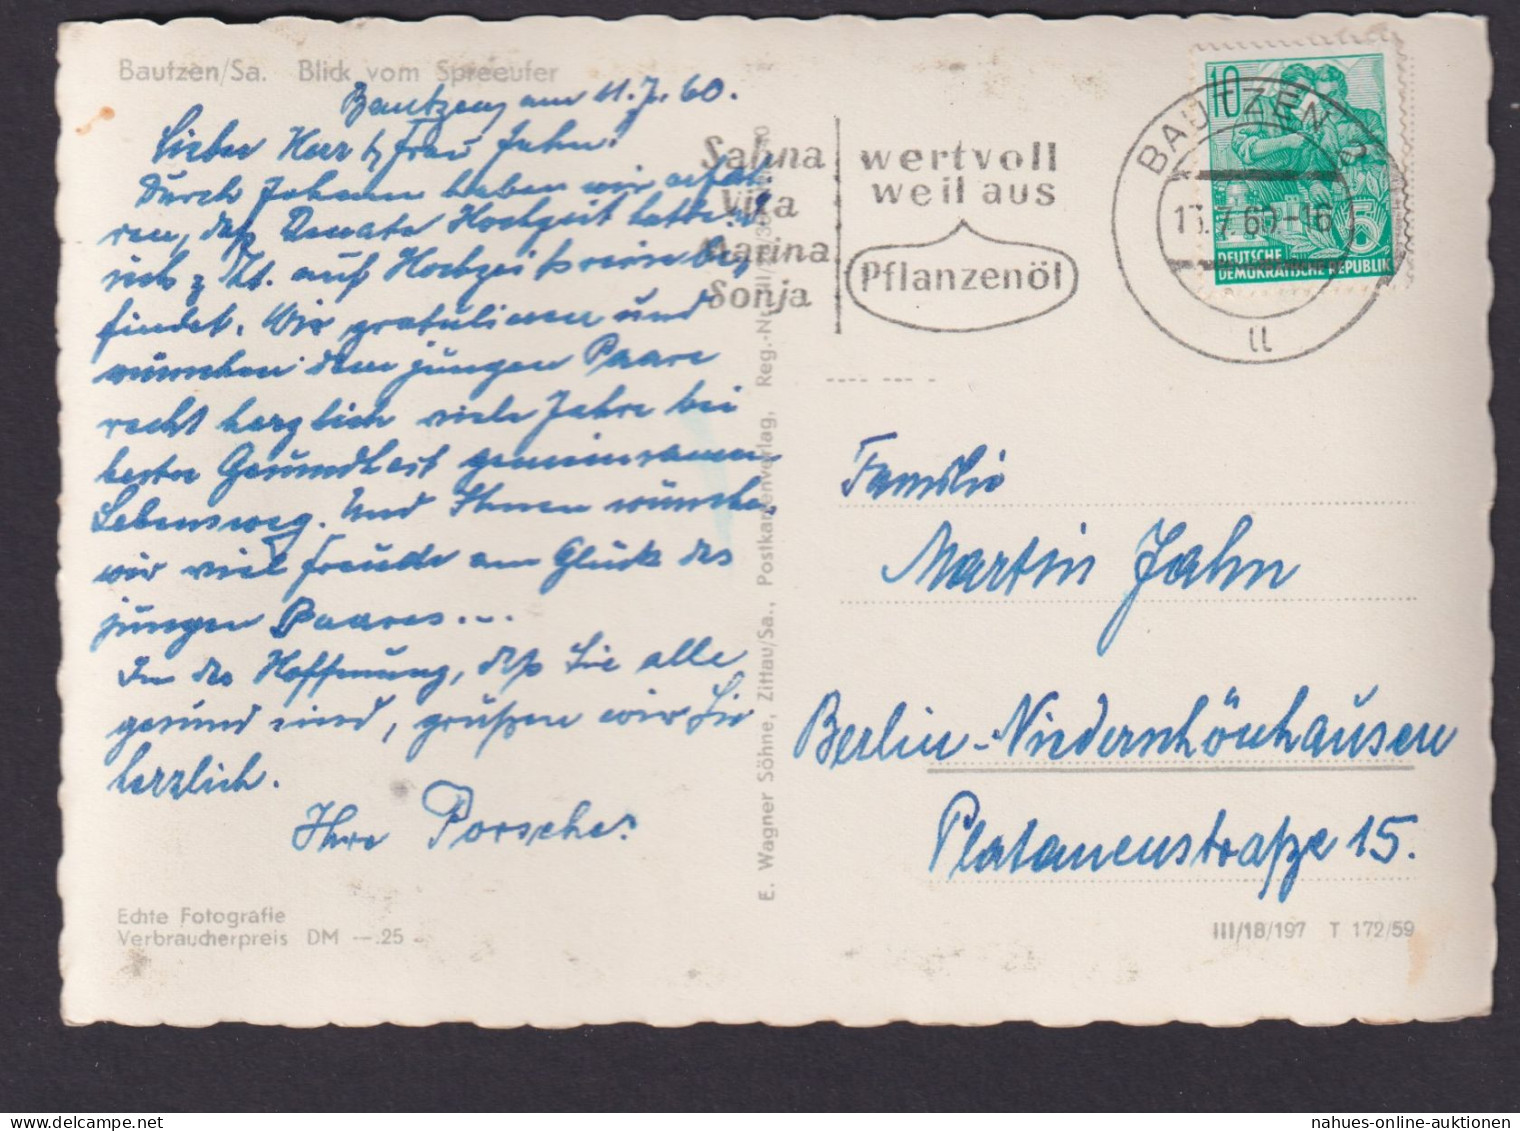 Bautzen/Sa. Blick vom Spreeufer
Bautzen, am 11.7.60.
Lieber Herr u. Frau Jahn!
Durch Johann haben wir erfah-
ren, daß Renate Hochzeit hatte und
sich z. Zt. auf Hochzeitsreise be-
findet. Wir gratulieren und
wünschen dem jungen Paare
recht herzlich viele Jahre bei
bester Gesundheit gemeinsamen
Lebensweg. Und Ihnen wünschen
wir viel Freude am Glück des
jungen Paares...
In der Hoffnung, daß Sie alle
gesund sind, grüßen wir Sie
herzlich.
Ihre Porsches.
Echte Fotografie
Verbraucherpreis DM —.25
E. Wagner Söhne, Zittau/Sa., Postkartenverlag, Reg.-Nr.
Sahna
Vita
Marina
Sonja
wertvoll
weil aus
Pflanzenöl
BAUTZEN 2
-7.60-16
u
10
5
DEUTSCHE
DEMOKRATISCHE REPUBLIK
Familie
Martin Jahn
Berlin-Niederschönhausen
Platanenstraße 15.
III/18/197 T 172/59
nahues-online-auktionen